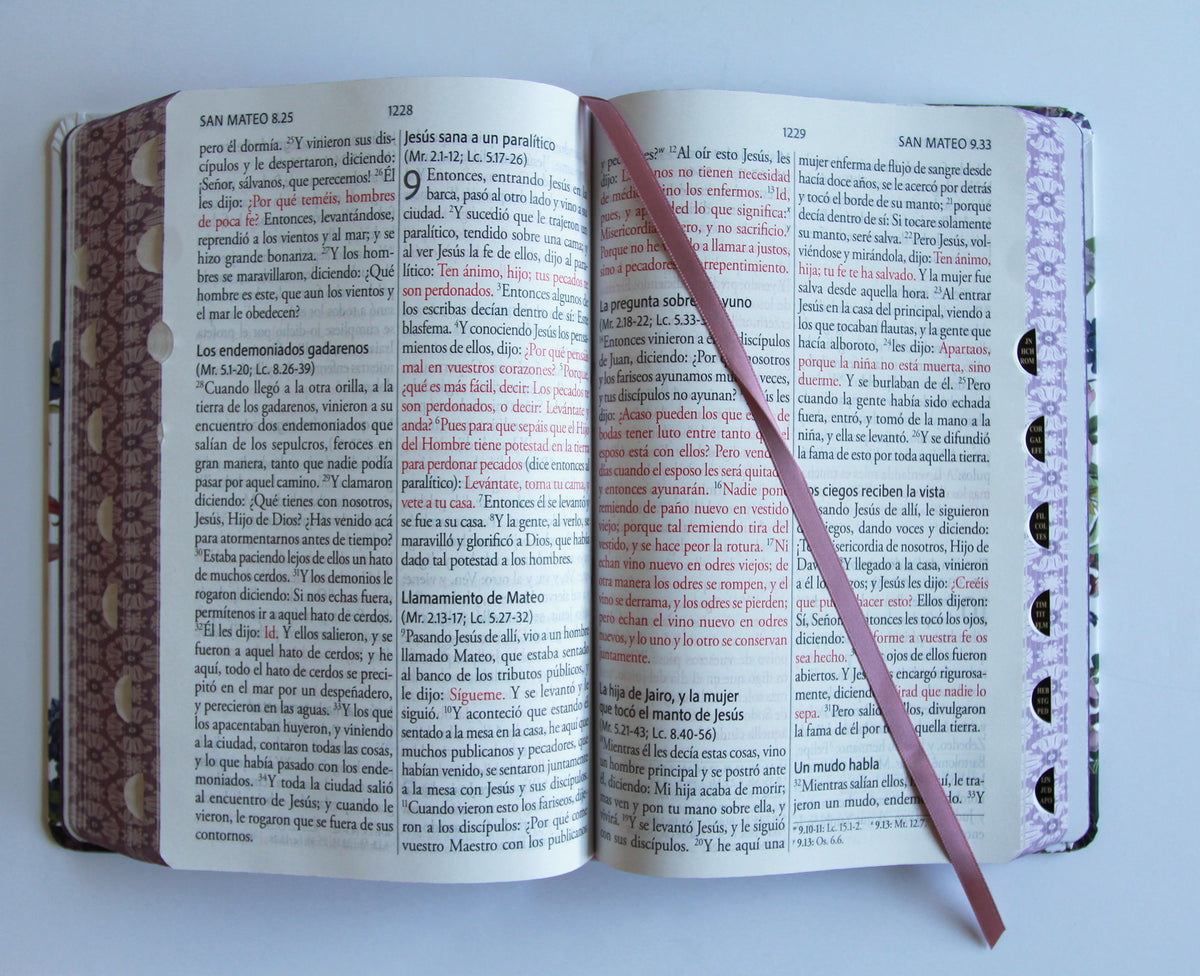 SAN MATEO 8.25
1228
pero él dormía. 25Y vinieron sus dis-
cípulos y le despertaron, diciendo:
¡Señor, sálvanos, que perecemos! 26Él
les dijo: ¿Por qué teméis, hombres
de poca fe? Entonces, levantándose,
reprendió a los vientos y al mar; y se
hizo grande bonanza. 27Y los hom-
bres se maravillaron, diciendo: ¿Qué
hombre es este, que aun los vientos y
el mar le obedecen?
Los endemoniados gadarenos
(Mr. 5.1-20; Lc. 8.26-39)
28Cuando llegó a la otra orilla, a la
tierra de los gadarenos, vinieron a su
encuentro dos endemoniados que
salían de los sepulcros, feroces en
gran manera, tanto que nadie podía
pasar por aquel camino. 29Y clamaron
diciendo: ¿Qué tienes con nosotros,
Jesús, Hijo de Dios? ¿Has venido acá
para atormentarnos antes de tiempo?
30Estaba paciendo lejos de ellos un hato
de muchos cerdos. 31Y los demonios le
rogaron diciendo: Si nos echas fuera,
permítenos ir a aquel hato de cerdos.
32Él les dijo: Id. Y ellos salieron, y se
fueron a aquel hato de cerdos; y he
aquí, todo el hato de cerdos se preci-
pitó en el mar por un despeñadero,
y perecieron en las aguas. 33Y los que
los apacentaban huyeron, y viniendo
a la ciudad, contaron todas las cosas,
y lo que había pasado con los ende-
moniados. 34Y toda la ciudad salió
al encuentro de Jesús; y cuando le
vieron, le rogaron que se fuera de sus
contornos.
Jesús sana a un paralítico
(Mr. 2.1-12; Lc. 5.17-26)
9 Entonces, entrando Jesús en la
barca, pasó al otro lado y vino a su
ciudad. 2Y sucedió que le trajeron un
paralítico, tendido sobre una cama; y
al ver Jesús la fe de ellos, dijo al para-
lítico: Ten ánimo, hijo; tus pecados te
son perdonados. 3Entonces algunos de
los escribas decían dentro de sí: Este
blasfema. 4Y conociendo Jesús los pensa-
mientos de ellos, dijo: ¿Por qué pensáis
mal en vuestros corazones? 5Porque,
¿qué es más fácil, decir: Los pecados te
son perdonados, o decir: Levántate y
anda? 6Pues para que sepáis que el Hijo
del Hombre tiene potestad en la tierra
para perdonar pecados (dice entonces al
paralítico): Levántate, toma tu cama, y
vete a tu casa. 7Entonces él se levantó y
se fue a su casa. 8Y la gente, al verlo, se
maravilló y glorificó a Dios, que había
dado tal potestad a los hombres.
Llamamiento de Mateo
(Mr. 2.13-17; Lc. 5.27-32)
9Pasando Jesús de allí, vio a un hombre
llamado Mateo, que estaba sentado
al banco de los tributos públicos, y
le dijo: Sígueme. Y se levantó y le
siguió. 10Y aconteció que estando él
sentado a la mesa en la casa, he aquí que
muchos publicanos y pecadores, que
habían venido, se sentaron juntamente
a la mesa con Jesús y sus discípulos.
11Cuando vieron esto los fariseos, dije-
ron a los discípulos: ¿Por qué come
vuestro Maestro con los publicanos
1229
SAN MATEO 9.33
y pecadores?w 12Al oír esto Jesús, les
dijo: Los sanos no tienen necesidad
de médico, sino los enfermos. 13Id,
pues, y aprended lo que significa:x
Misericordia quiero, y no sacrificio.y
Porque no he venido a llamar a justos,
sino a pecadores, al arrepentimiento.
La pregunta sobre el ayuno
(Mr. 2.18-22; Lc. 5.33-3
14Entonces vinieron a él los discípulos
de Juan, diciendo: ¿Por qué nosotros
y los fariseos ayunamos muchas veces,
y tus discípulos no ayunan? Jesús les
dijo: ¿Acaso pueden los que están de
bodas tener luto entre tanto que el
esposo está con ellos? Pero vendrán
días cuando el esposo les será quitado,
y entonces ayunarán. 16Nadie pone
remiendo de paño nuevo en vestido
viejo; porque tal remiendo tira del
vestido, y se hace peor la rotura. 17Ni
echan vino nuevo en odres viejos; de
otra manera los odres se rompen, y el
vino se derrama, y los odres se pierden;
pero echan el vino nuevo en odres
nuevos, y lo uno y lo otro se conservan
juntamente.
La hija de Jairo, y la mujer
que tocó el manto de Jesús
(Mr. 5.21-43; Lc. 8.40-56)
18Mientras él les decía estas cosas, vino
un hombre principal y se postró ante
él, diciendo: Mi hija acaba de morir;
mas ven y pon tu mano sobre ella, y
vivirá. 19Y se levantó Jesús, y le siguió
con sus discípulos. 20Y he aquí una
mujer enferma de flujo de sangre desde
hacía doce años, se le acercó por detrás
y tocó el borde de su manto; 21porque
decía dentro de sí: Si tocare solamente
su manto, seré salva. 22Pero Jesús, vol-
viéndose y mirándola, dijo: Ten ánimo,
hija; tu fe te ha salvado. Y la mujer fue
salva desde aquella hora. 23Al entrar
Jesús en la casa del principal, viendo a
los que tocaban flautas, y la gente que
hacía alboroto, 24les dijo: Apartaos,
porque la niña no está muerta, sino
duerme. Y se burlaban de él. 25Pero
cuando la gente había sido echada
fuera, entró, y tomó de la mano a la
niña, y ella se levantó. 26Y se difundió
la fama de esto por toda aquella tierra.
Dos ciegos reciben la vista
Pasando Jesús de allí, le siguieron
ciegos, dando voces y diciendo:
¡Ten misericordia de nosotros, Hijo de
David! Y llegado a la casa, vinieron
a él los ciegos; y Jesús les dijo: ¿Creéis
que puedo hacer esto? Ellos dijeron:
Sí, Señor. Entonces les tocó los ojos,
diciendo: Conforme a vuestra fe os
sea hecho. ojos de ellos fueron
abiertos. Y Jesús les encargó rigurosa-
mente, diciendo: Mirad que nadie lo
sepa. 31Pero salidos ellos, divulgaron
la fama de él por toda aquella tierra.
Un mudo habla
32Mientras salían ellos, he aquí, le tra-
jeron un mudo, endemoniado. 33Y
w 9.10-11: Lc. 15.1-2. x 9.13: Mt. 12.7.
y 9.13: Os. 6.6.
JN
HCH
ROM
COR
GAL
EFE
FIL
COL
TES
TIM
TIT
FLM
HEB
STG
PED
1JN
JUD
APO